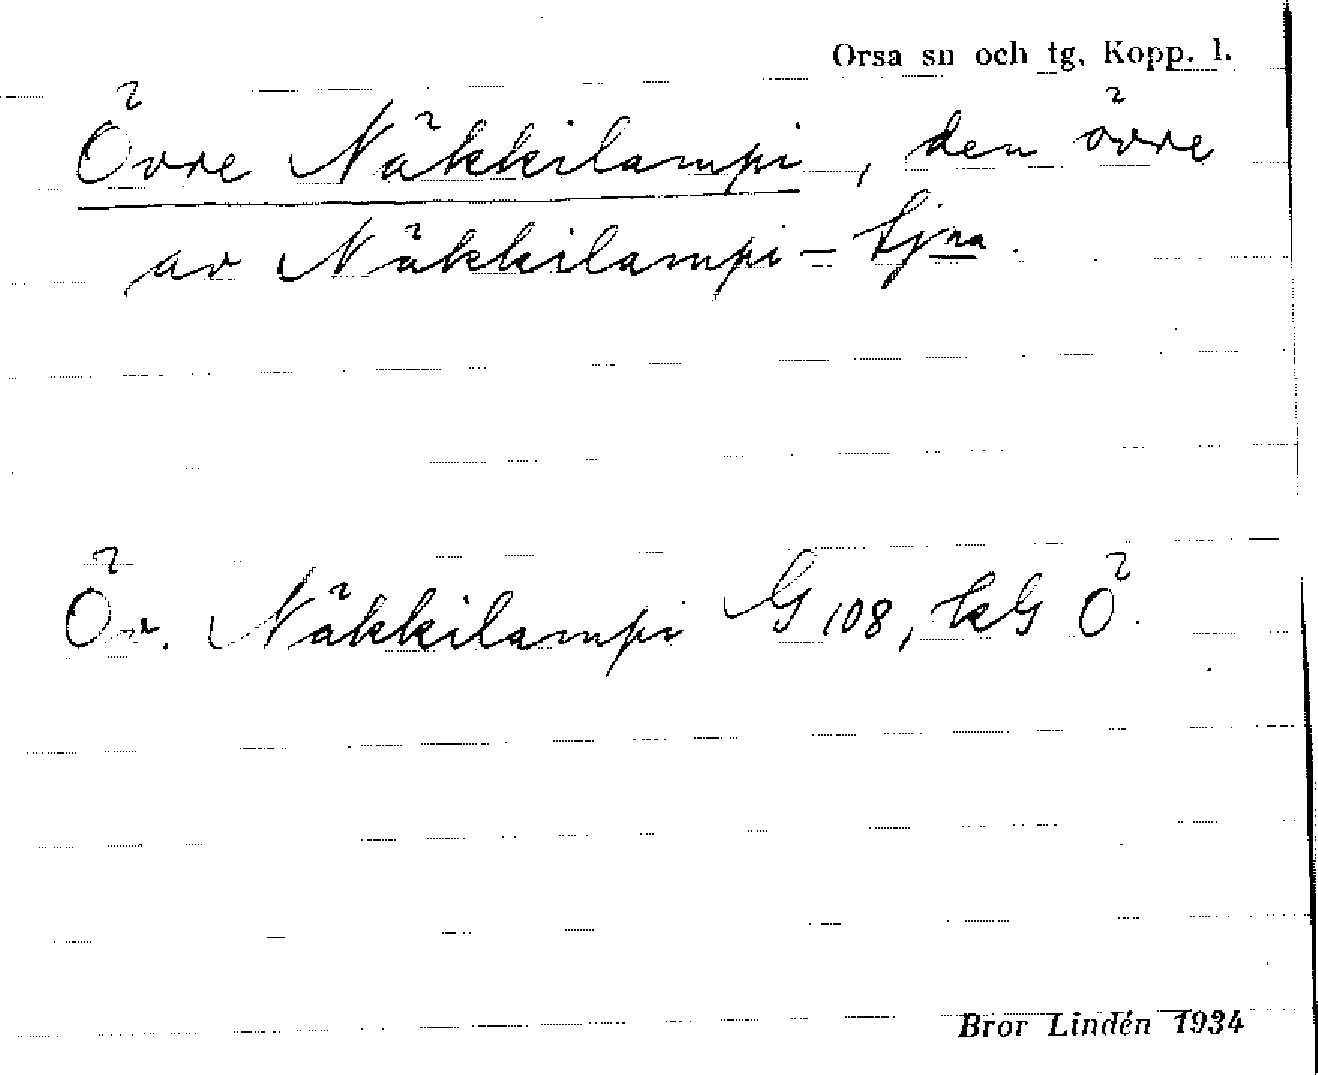 Orsa sn och tg. Kopp. l.
Övre Näkkilampi, den övre
av Näkkilampi-tjna.
Öv. Näkkilampi G 108, kG Ö.
Bror Lindén 1934